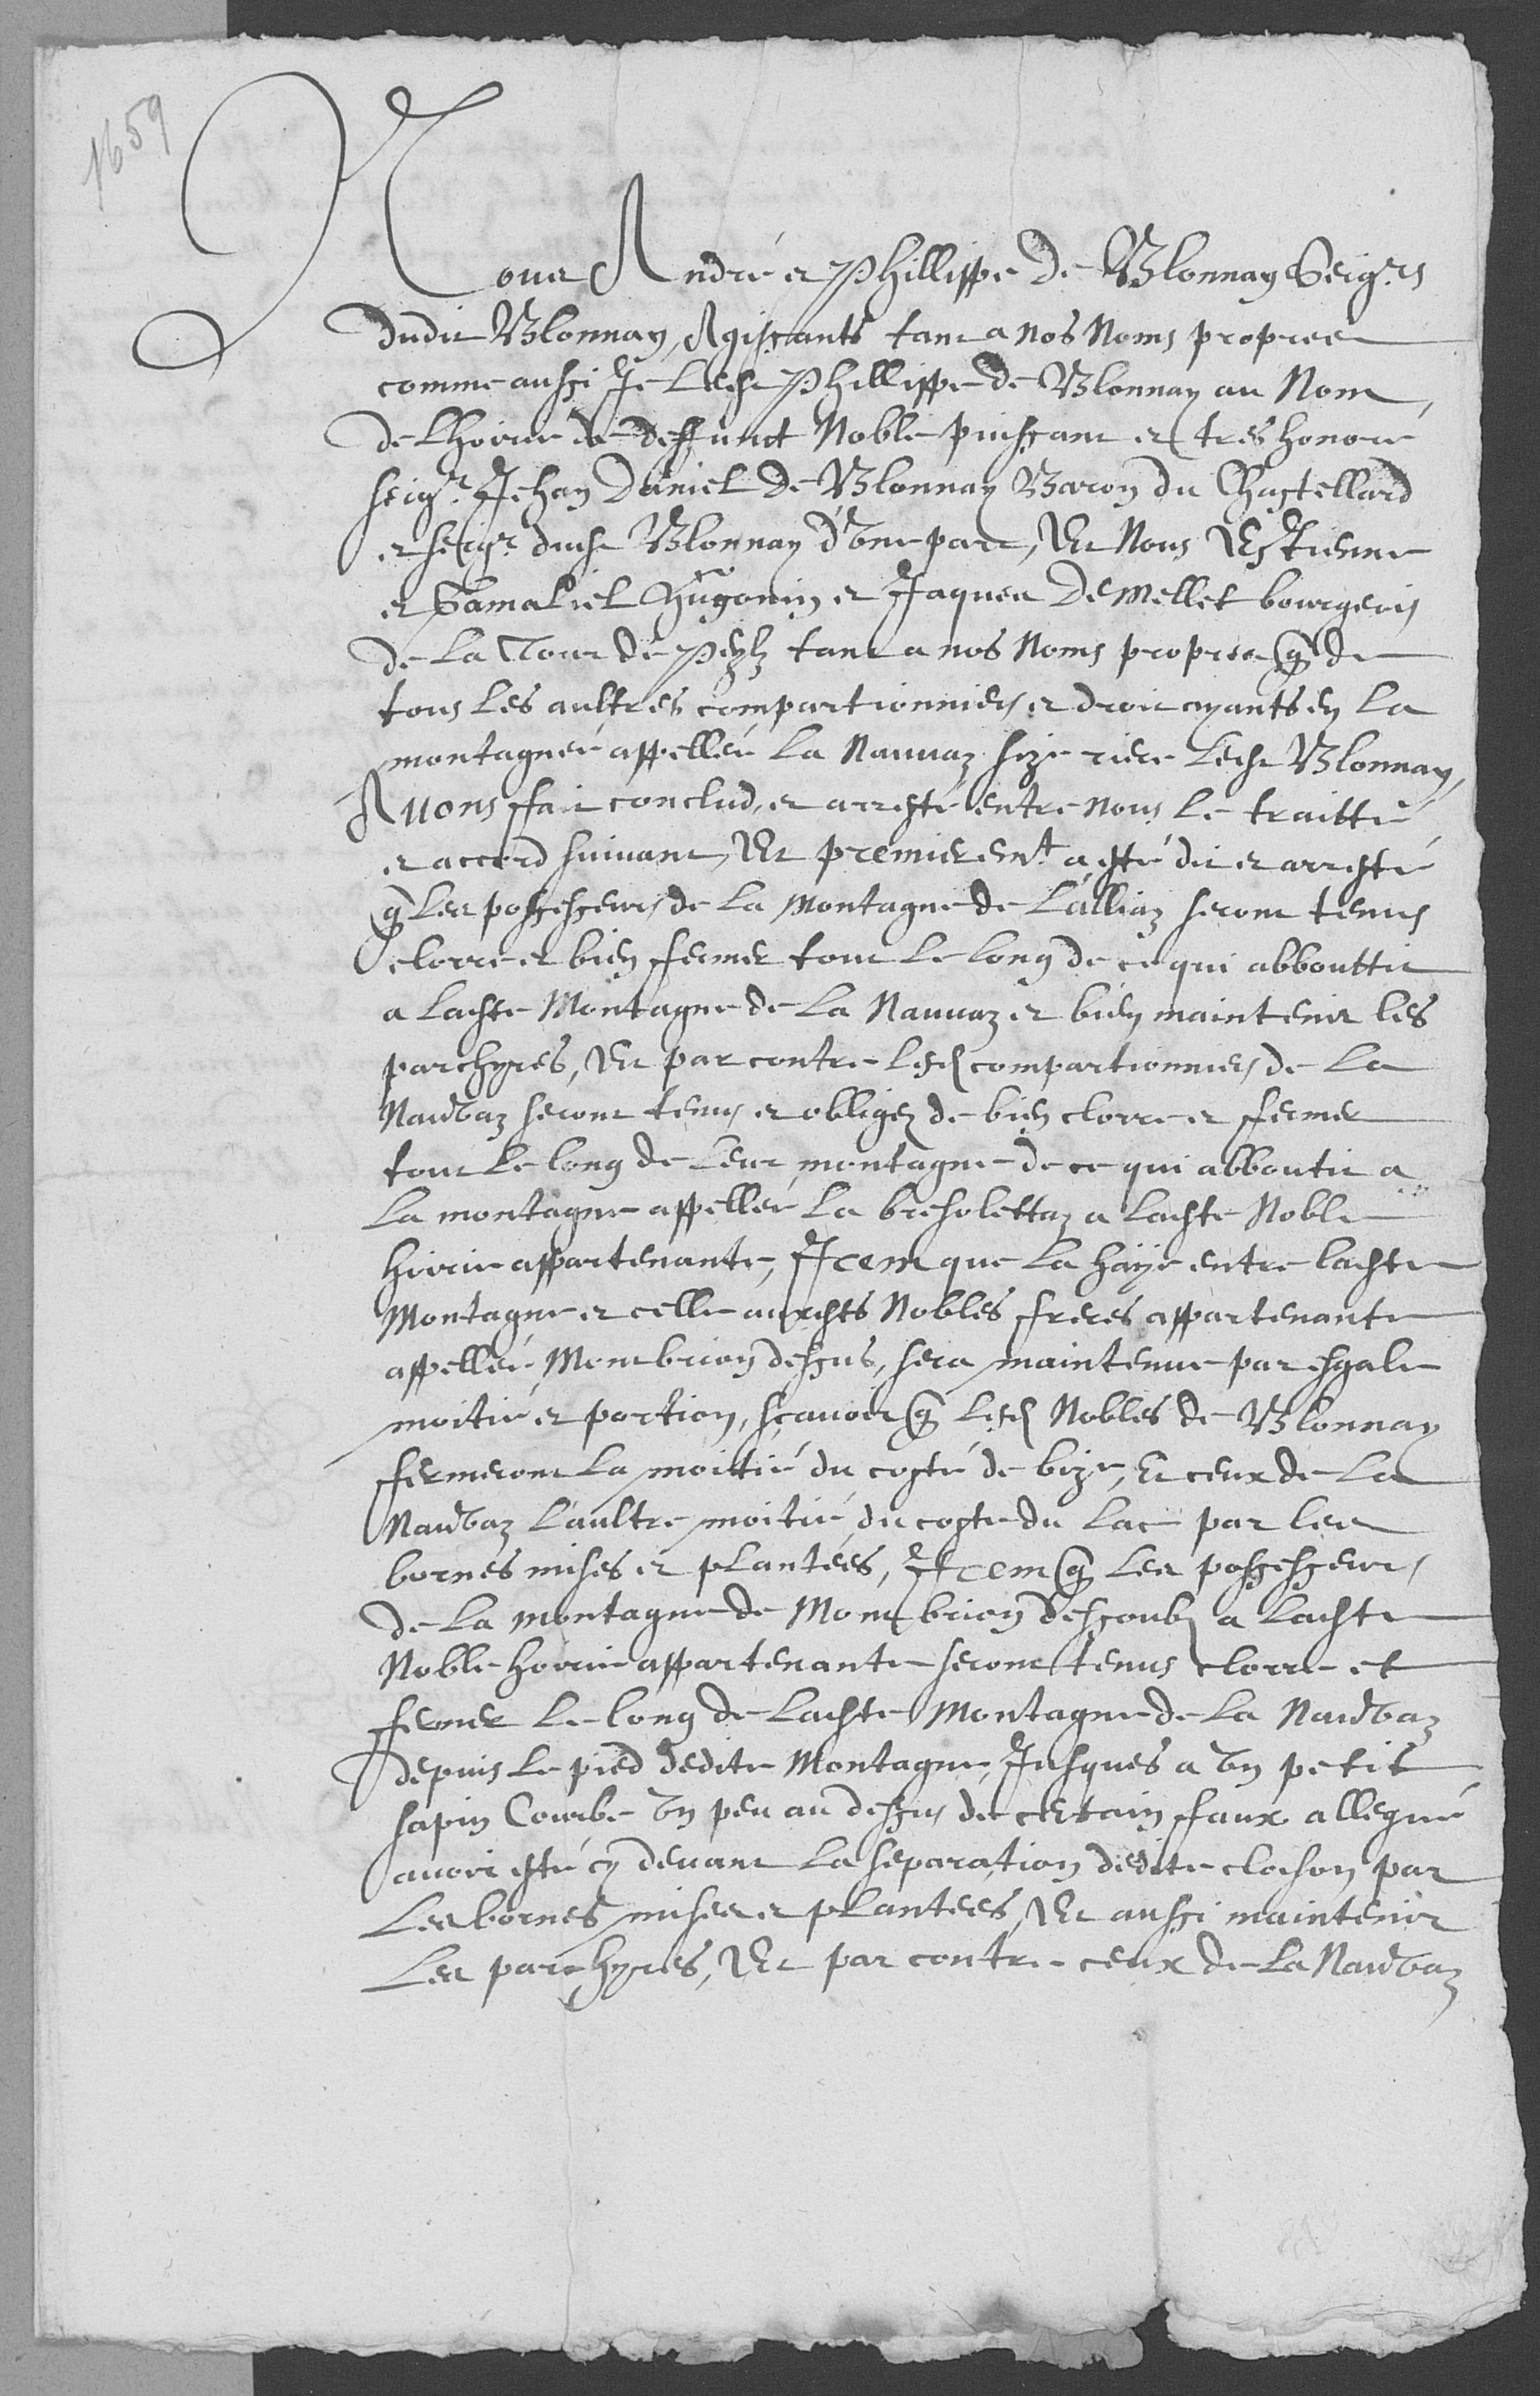 1659
Nous André et Phillippe de Blonnay Seigrs
dudit Blonnay, Agissants tant a nos Noms propres
comme aussi Je ledit Phillippe de Blonnay au Nom,
de lhoirie de deffunct Noble puissant et tres honoré
seigr Jehan Daniel de Blonnay Baron du Chastellard
et seigr dudit Blonnay d'vne part, Et Nous Estienne
et Gamaliel Hugonin et Jaques Demellet bourgeois
de la Tour de Peylz tant a nos Noms propres q de
tous les aultres compartionniers et droit ayants en la
montagne appellée la Nauuaz size riere ledit Blonnay,
Auons ffait conclud, et arresté entre nous le traitté
et accord suiuant, Et premieremt a esté dit et arresté
q les possesseurs de la Montagne de l'alliaz seront tenus
clorre et bien ffermer tout le long de ce qui abbouttit
a ladte Montagne de la Nauuaz et bien maintenir les
parchyres, Et par contre lesd compartionniers de la
Nauvaz seront tenus et obligez de bien clorre et ffermer
tout le long de leur montagne de ce qui abboutit a
la montagne appellée la bresolettaz a ladte Noble
hoirie appartenante, Item que la haye entre ladte
Montagne et celle auxdts Nobles ffreres appartenante
appellée Mombrion dessus, sera maintenue par esgale
moitié et portion, sçauoir q lesd Nobles de Blonnay
ffermeront la moittié du costé de bize, Et ceux de la
Nauvaz l'aultre moitié du costé du lac par les
bornes mises et plantées, Item q les possesseurs
de la montagne de Mombrion dessoubs a ladte
Noble hoirie appartenante seront tenus clorre et
ffermer le long de ladte Montagne de la Nauvaz
depuis le pied dedite Montagne, Jusques a vn petit
sapin Courbe vn peu au dessus de certain ffaux allegué
auoir esté cy deuant la separation dedite closon par
les bornes mises et plantées, Et aussi maintenir
les parchyres, Et par contre ceux de la Nauvaz